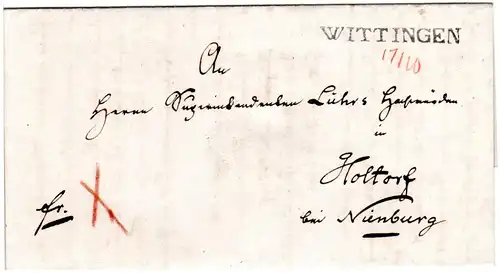 WITTINGEN
17/10
An
Herrn Superintendenten Lührs Hochwürden
in
Holtorf
bei Nienburg
fr.